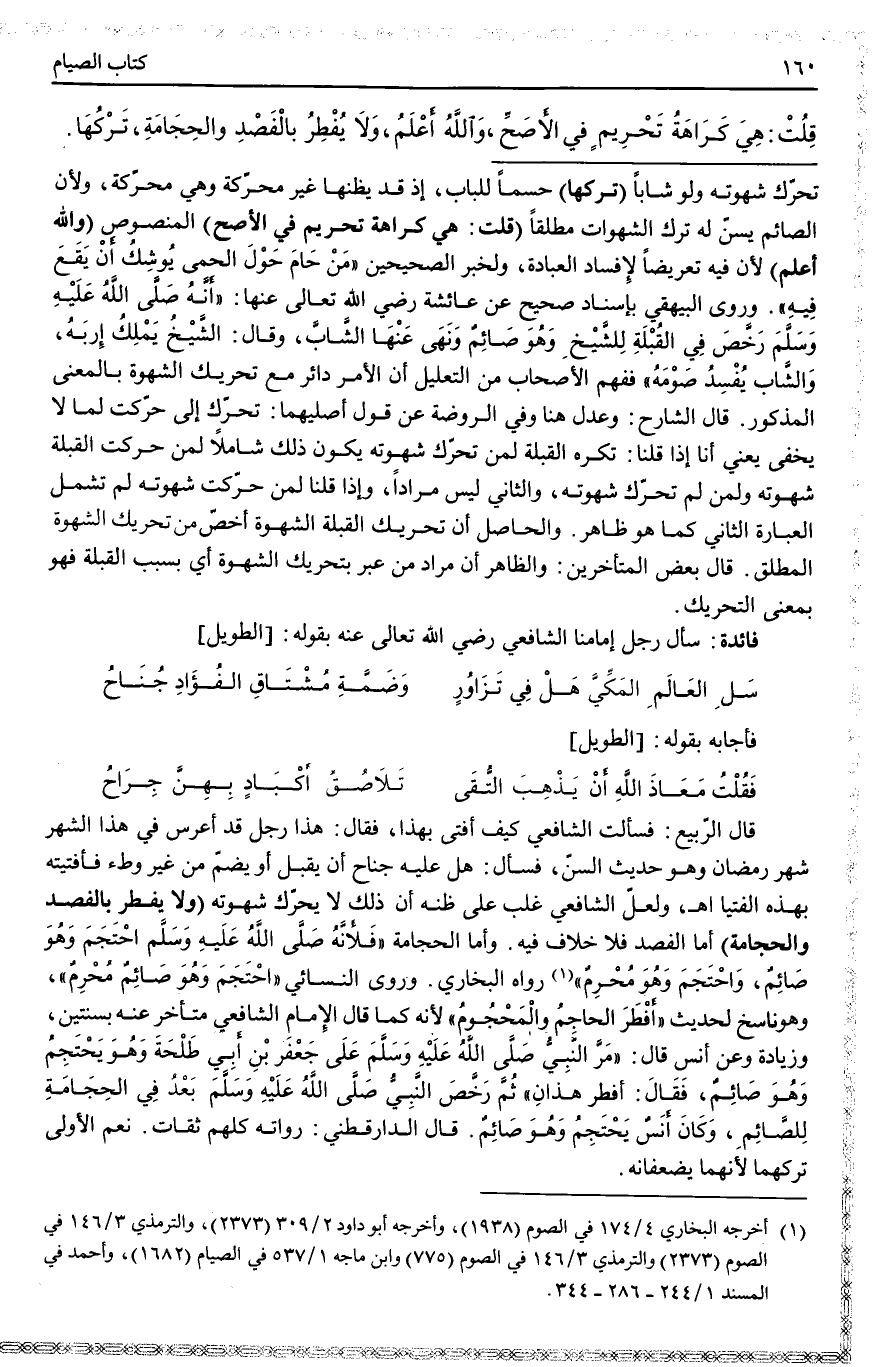 ١٦٠ كتاب الصيام
قُلْتُ: هِيَ كَرَاهَةُ تَحْرِيمٍ في الأَصَحِّ، وَٱللَّهُ أَعْلَمُ، وَلَا يُفْطِرُ بالْفَصْدِ والحِجَامَةِ، تَرْكُهَا.
تحرّك شهوته ولو شاباً (تركها) حسماً للباب، إذ قد يظنها غير محرّكة وهي محركّة، ولأن
الصائم يسنّ له ترك الشهوات مطلقاً (قلت: هي كراهة تحريم في الأصح) المنصوص (والله
أعلم) لأن فيه تعريضاً لإفساد العبادة، ولخبر الصحيحين «مَنْ حَامَ حَوْلَ الحمى يُوشِكُ أَنْ يَقَعَ
فِيهِ». وروى البيهقي بإسناد صحيح عن عائشة رضي الله تعالى عنها: «أَنَّهُ صَلَّى اللَّهُ عَلَيْهِ
وَسَلَّمَ رَخَّصَ فِي القُبْلَةِ لِلشَّيْخِ وَهُوَ صَائِمٌ وَنَهَى عَنْهَا الشَّابَّ، وقال: الشَّيْخُ يَمْلِكُ إِربَهُ،
وَالشَّاب يُفْسِدُ صَوْمَهُ» ففهم الأصحاب من التعليل أن الأمر دائر مع تحريك الشهوة بالمعنى
المذكور. قال الشارح: وعدل هنا وفي الروضة عن قول أصليهما: تحرّك إلى حرّكت لما لا
يخفى يعني أنا إذا قلنا: تكره القبلة لمن تحرّك شهوته يكون ذلك شاملاً لمن حركت القبلة
شهوته ولمن لم تحرّك شهوته، والثاني ليس مراداً، وإذا قلنا لمن حرّكت شهوته لم تشمل
العبارة الثاني كما هو ظاهر. والحاصل أن تحريك القبلة الشهوة أخصّ من تحريك الشهوة
المطلق. قال بعض المتأخرين: والظاهر أن مراد من عبر بتحريك الشهوة أي بسبب القبلة فهو
بمعنى التحريك.
فائدة: سأل رجل إمامنا الشافعي رضي الله تعالى عنه بقوله: [الطويل]
سَلِ العَالَمِ المَكِّيَّ هَلْ فِي تَزَاوُرٍ وَضَمَّةِ مُشْتَاقِ الفُؤَادِ جُنَاحُ
فأجابه بقوله: [الطويل]
فَقُلْتُ مَعَاذَ اللَّهِ أَنْ يَذْهِبَ التُّقَى تَلَاصُقُ أَكْبَادٍ بِهِنَّ جِرَاحُ
قال الرّبيع: فسألت الشافعي كيف أفتى بهذا، فقال: هذا رجل قد أعرس في هذا الشهر
شهر رمضان وهو حديث السنّ، فسأل: هل عليه جناح أن يقبل أو يضمّ من غير وطء فأفتيته
بهذه الفتيا اهـ، ولعلّ الشافعي غلب على ظنه أن ذلك لا يحرّك شهوته (ولا يفطر بالفصد
والحجامة) أما الفصد فلا خلاف فيه. وأما الحجامة «فَلأَنَّهُ صَلَّى اللَّهُ عَلَيهِ وَسَلَّم احْتَجَمَ وَهُوَ
صَائِمٌ، وَاحْتَجَمَ وَهُوَ مُحْرِمٌ»(١) رواه البخاري. وروى النسائي «احْتَجَمَ وَهُوَ صَائِمٌ مُحْرِمٌ»،
وهوناسخ لحديث «أَفْطَرَ الحاجِمُ والْمَحْجُومُ» لأنه كما قال الإمام الشافعي متأخر عنه بسنتين،
وزيادة وعن أنس قال: «مَرَّ النَّبِيُّ صَلَّى اللَّهُ عَلَيْهِ وَسَلَّمَ عَلَى جَعْفَرِ بْنِ أَبِي طَلْحَةَ وَهُوَ يَحْتَجِمُ
وَهُوَ صَائِمٌ، فَقَالَ: أفطر هذانِ» ثُمَّ رَخَّصَ النَّبِيُّ صَلَّى اللَّهُ عَلَيْهِ وَسَلَّمَ بَعْدُ فِي الحِجَامَةِ
لِلصَّائِمِ، وَكَانَ أَنَسٌ يَحْتَجِمُ وَهُوَ صَائِمٌ. قال الدارقطني: رواته كلهم ثقات. نعم الأولى
تركهما لأنهما يضعفانه.
(١) أخرجه البخاري ١٧٤/٤ في الصوم (١٩٣٨)، وأخرجه أبو داود ٣٠٩/٢ (٢٣٧٣)، والترمذي ١٤٦/٣ في
الصوم (٢٣٧٣) والترمذي ١٤٦/٣ في الصوم (٧٧٥) وابن ماجه ٥٣٧/١ في الصيام (١٦٨٢)، وأحمد في
المسند ٢٤٤/١ - ٢٨٦ - ٣٤٤.